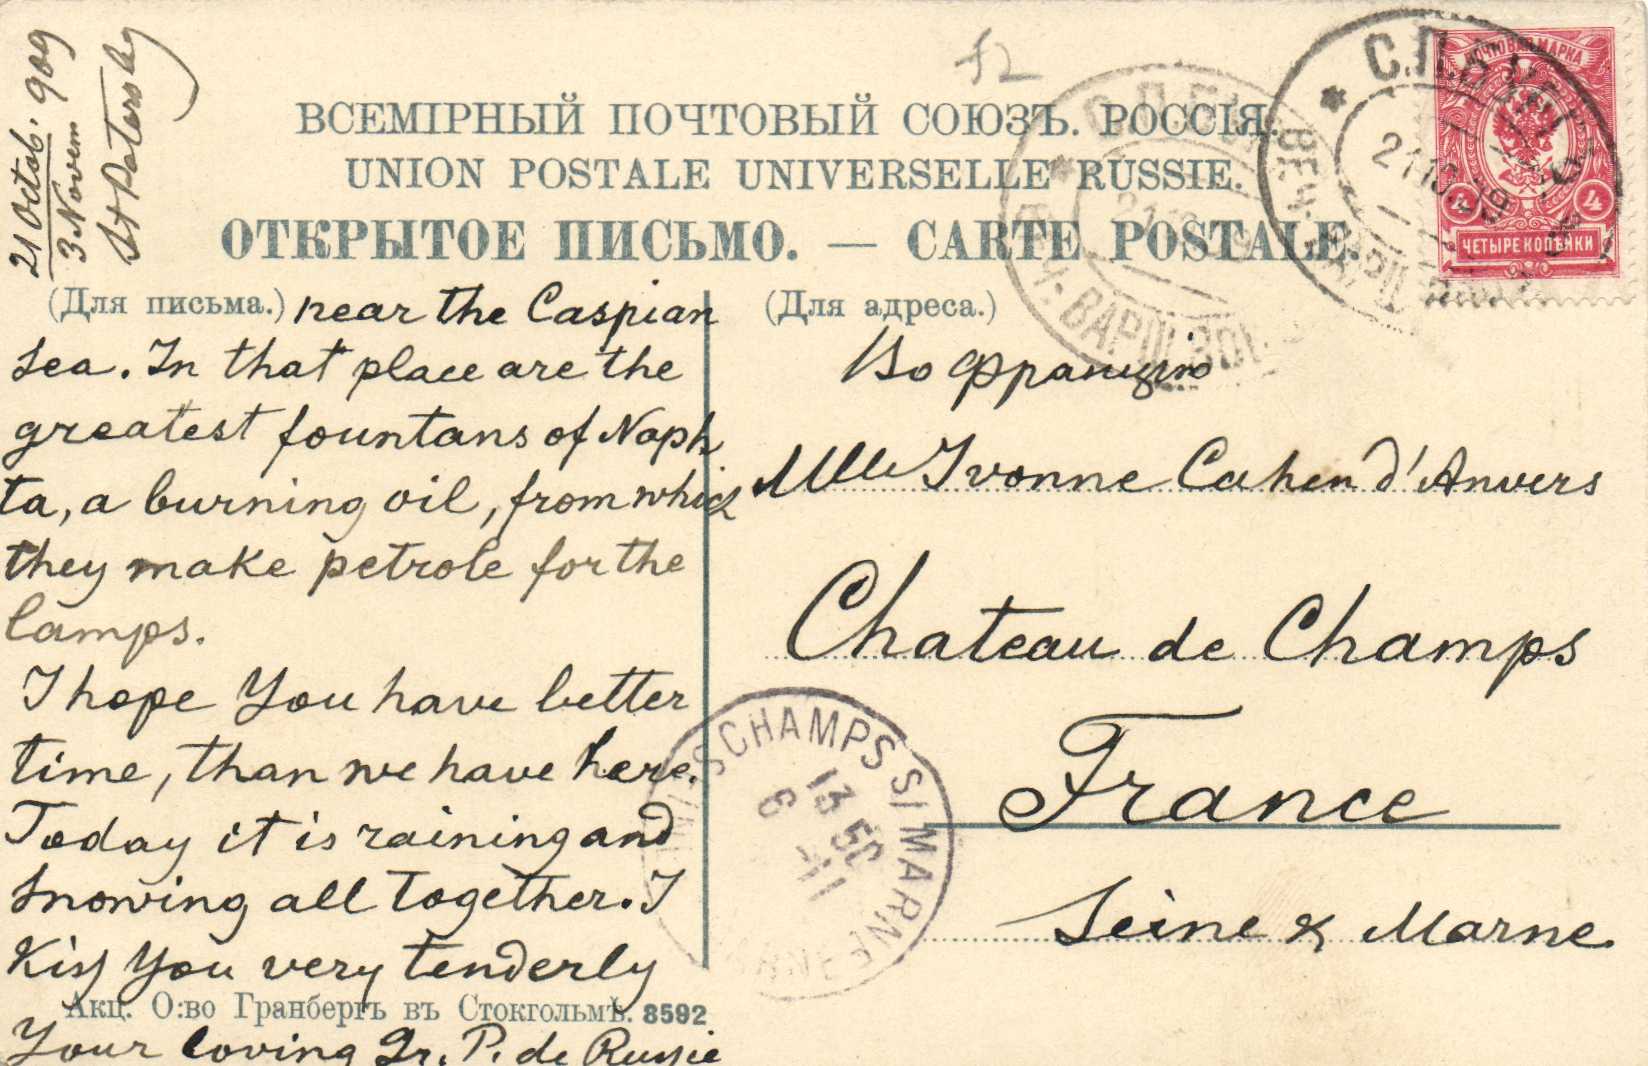 21 Octob. 909
3 Novem
St Petersbg
52
ВСЕМІРНЫЙ ПОЧТОВЫЙ СОЮЗЪ. РОССІЯ.
UNION POSTALE UNIVERSELLE RUSSIE.
ОТКРЫТОЕ ПИСЬМО. — CARTE POSTALE.
ПОЧТОВАЯ МАРКА
4 4
ЧЕТЫРЕ КОПѢЙКИ
С.П.Б.
21 10 09
ВЕЧ. ВАРШ.
С.П.Б.
ВЕЧ. ВАРШ. ВОК.
(Для письма.)
near the Caspian
Sea. In that place are the
greatest fountans of Naph
ta, a burning oil, from which
they make petrole for the
lamps.
I hope You have better
time, than we have here.
Today it is raining and
snowing all together. I
Kiss You very tenderly
Your loving Gr. P. de Russie
(Для адреса.)
Во Францію
Mlle Yvonne Cahen d'Anvers
Chateau de Champs
France
Seine & Marne.
CHAMPS S/ MARNE
13 50
6 -11
MARNE
Акц. О:во Гранбергъ въ Стокгольмѣ. 8592